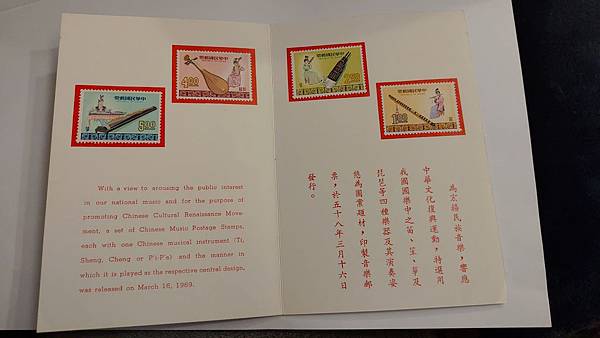 中華民國郵票
4.00
中華民國郵票
5.00
With a view to arousing the public interest
in our national music and for the purpose of
promoting Chinese Cultural Renaissance Move-
ment, a set of Chinese Music Postage Stamps,
each with one Chinese musical instrument (Ti,
Sheng, Cheng or P'i-P'a) and the manner in
which it is played as the respective central design,
was released on March 16, 1969.
中華民國郵票
2.50
中華民國郵票
1.00
為宏揚民族音樂，響應
中華文化復興運動，特選用
我國國樂中之笛、笙、箏及
琵琶等四種樂器及其演奏姿
態為圖案題材，印製音樂郵
票，於五十八年三月十六日
發行。